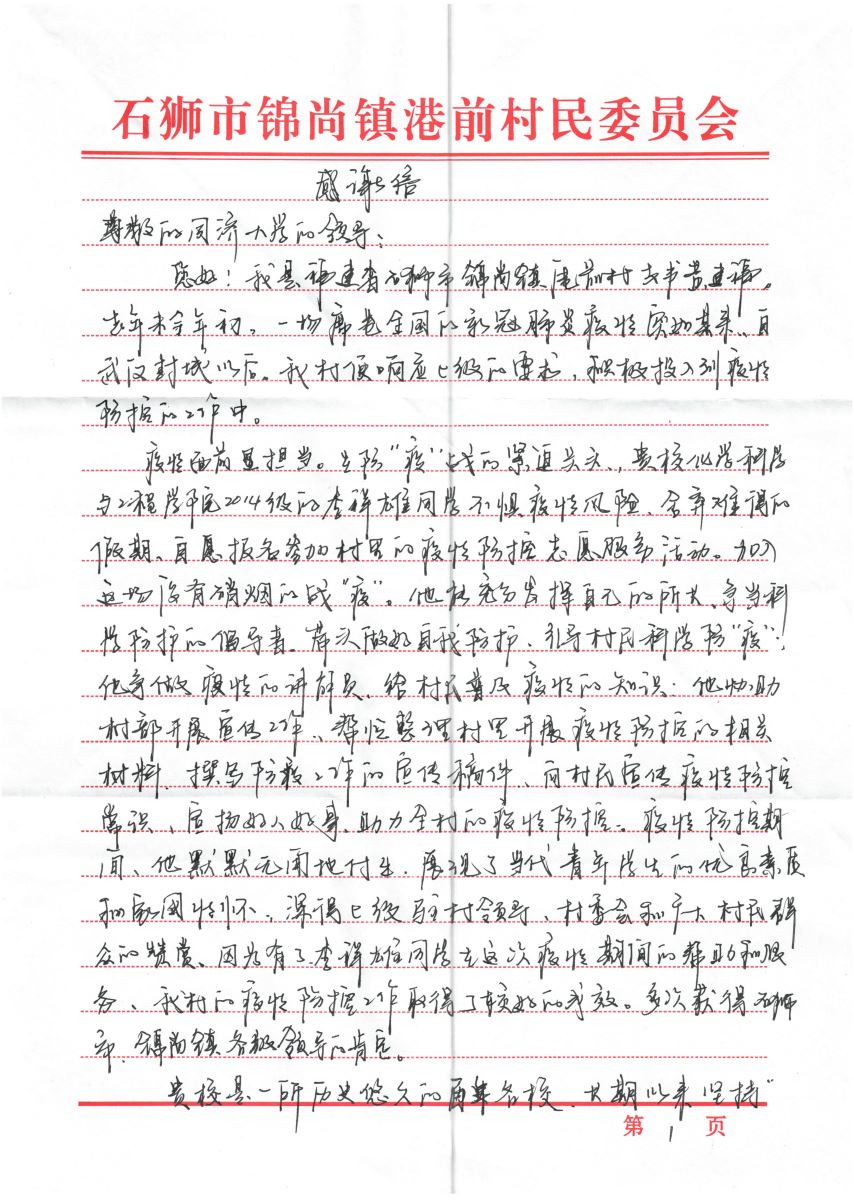 石狮市锦尚镇港前村民委员会
感谢信
尊敬的同济大学的领导：
您好！我是福建省石狮市锦尚镇港前村支书黄建福。
去年末今年初，一场席卷全国的新冠肺炎疫情突如其来、自
武汉封城以后，我村便响应上级的要求，积极投入到疫情
防控的工作中。
疫情面前显担当。在防“疫”战的紧逼关头，贵校化学科学
与工程学院2014级的李祥雄同学不惧疫情风险、舍弃难得的
假期、自愿报名参加村里的疫情防控志愿服务活动。加入
这场没有硝烟的战“疫”。他充分发挥自己的所长、争当科
学防护的倡导者、带头做好自我防护、引导村民科学防“疫”；
他争做疫情的讲解员、给村民普及疫情的知识；他协助
村部开展宣传工作、帮忙整理村里开展疫情防控的相关
材料、撰写防疫工作的宣传稿件、向村民宣传疫情防控
常识、宣扬好人好事、助力全村的疫情防控。疫情防控期
间、他默默无闻地付出、展现了当代青年学生的优良素质
和家国情怀。深得上级驻村领导、村委会和广大村民群
众的赞赏、因为有了李祥雄同学在这次疫情期间的帮助和服
务、我村的疫情防控工作取得了较好的成效。多次获得石狮
市、锦尚镇各级领导的肯定。
贵校是一所历史悠久的百年名校、长期以来坚持“
第 1 页